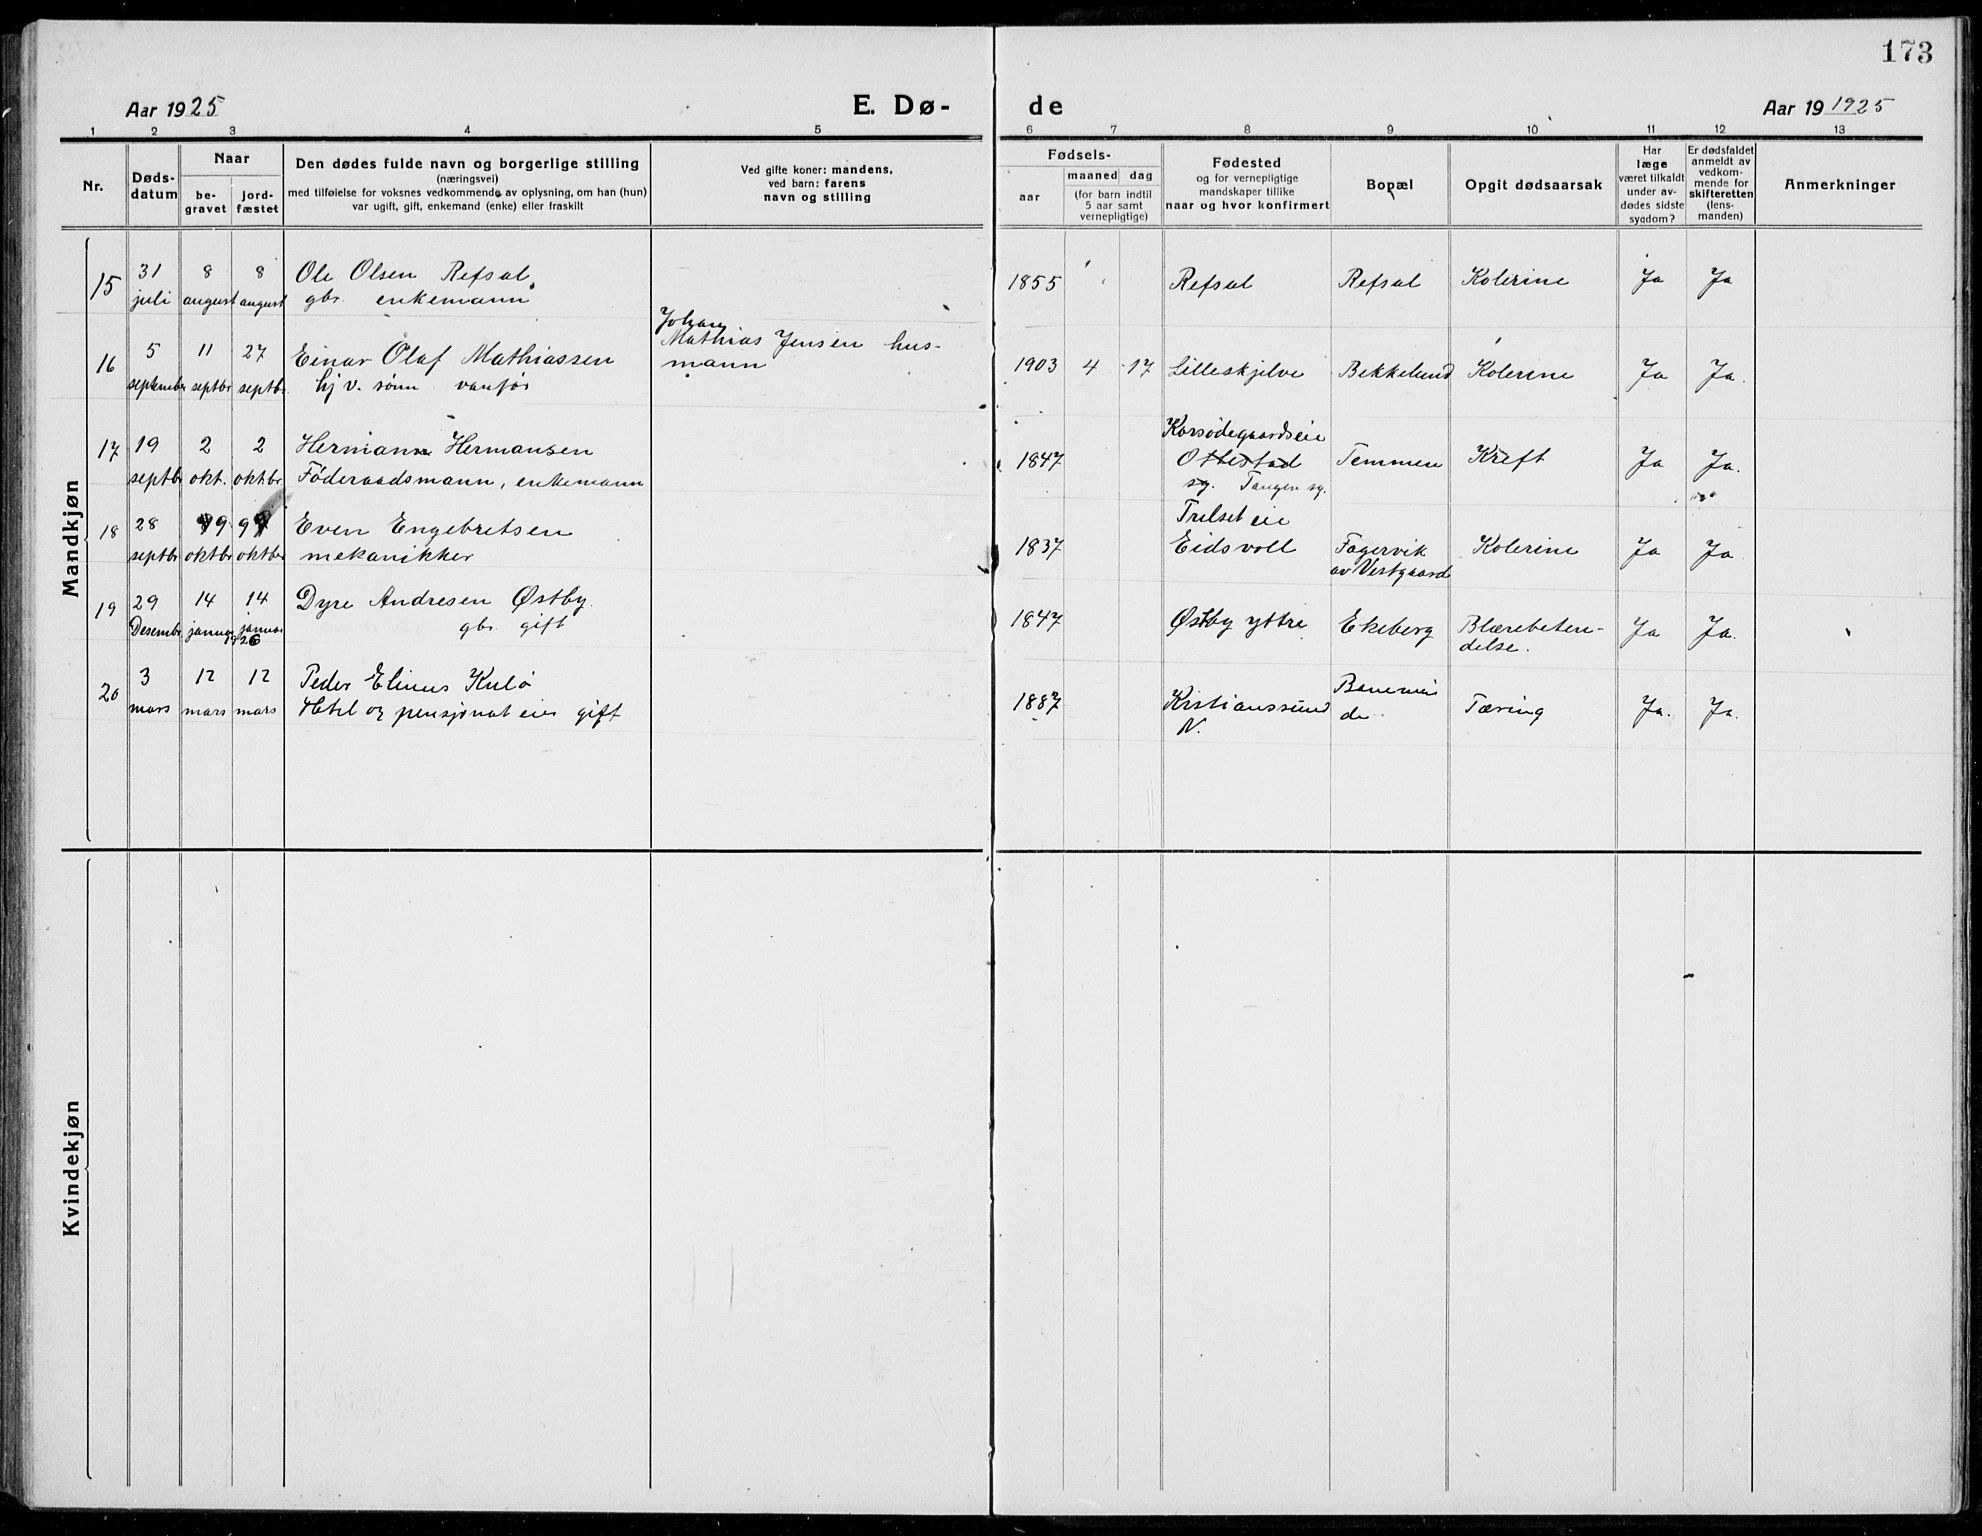 173
Aar 1925 E. Dø- de Aar 19 1925
1 2 3 4 5 6 7 8 9 10 11 12 13
Nr.
Døds-
datum
Naar
be-
gravet
jord-
fæstet
Den dødes fulde navn og borgerlige stilling
(næringsvei)
med tilføielse for voksnes vedkommende av oplysning, om han (hun)
var ugift, gift, enkemand (enke) eller fraskilt
Ved gifte koner: mandens,
ved barn: farens
navn og stilling
Fødsels-
aar
maaned dag
(for barn indtil
5 aar samt
vernepligtige)
Fødested
og for vernepligtige
mandskaper tillike
naar og hvor konfirmert
Bopæl
Opgit dødsaarsak
Har
læge
været tilkaldt
under av-
dødes sidste
sygdom?
Er dødsfaldet
anmeldt av
vedkom-
mende for
skifteretten
(lens-
manden)
Anmerkninger
Mandkjøn
15 31 8 8 Ole Olsen Refsal 1855 Refsal Refsal Kolerine Ja Ja
juli august august gbr. enkemann
Johan
16 5 11 27 Einar Olaf Mathiassen Mathias Jensen hus- 1903 4 17 Lilleskjelve Bekkelund Kolerine Ja Ja.
september septbr septbr. hj v. sønn vanfør mann
Korsødegaardseie
17 19 2 2 Hermann Hermansen 1847 Ottestad Temmen Kreft Ja Ja.
septbr okt. oktbr. Føderaadsmann, enkemann sg. Tangen sg.
Trelset eie
18 28 9 9 Even Engebretsen 1837 Eidsvoll Fagervik Kolerine Ja Ja.
septbr oktbr oktbr mekanikker av Vestgaard
19 29 14 14 Dyre Andresen Østby. 1847 Østby yttre Ekeberg Blærebeten- Ja Ja.
Desembr januar januar gbr. gift delse.
1926
20 3 12 12 Peder Elinus Kulø 1887 Kristianssund Tæring Ja. Ja.
mars mars mars Hotel og pensjonat eier gift N.
Kvindekjøn